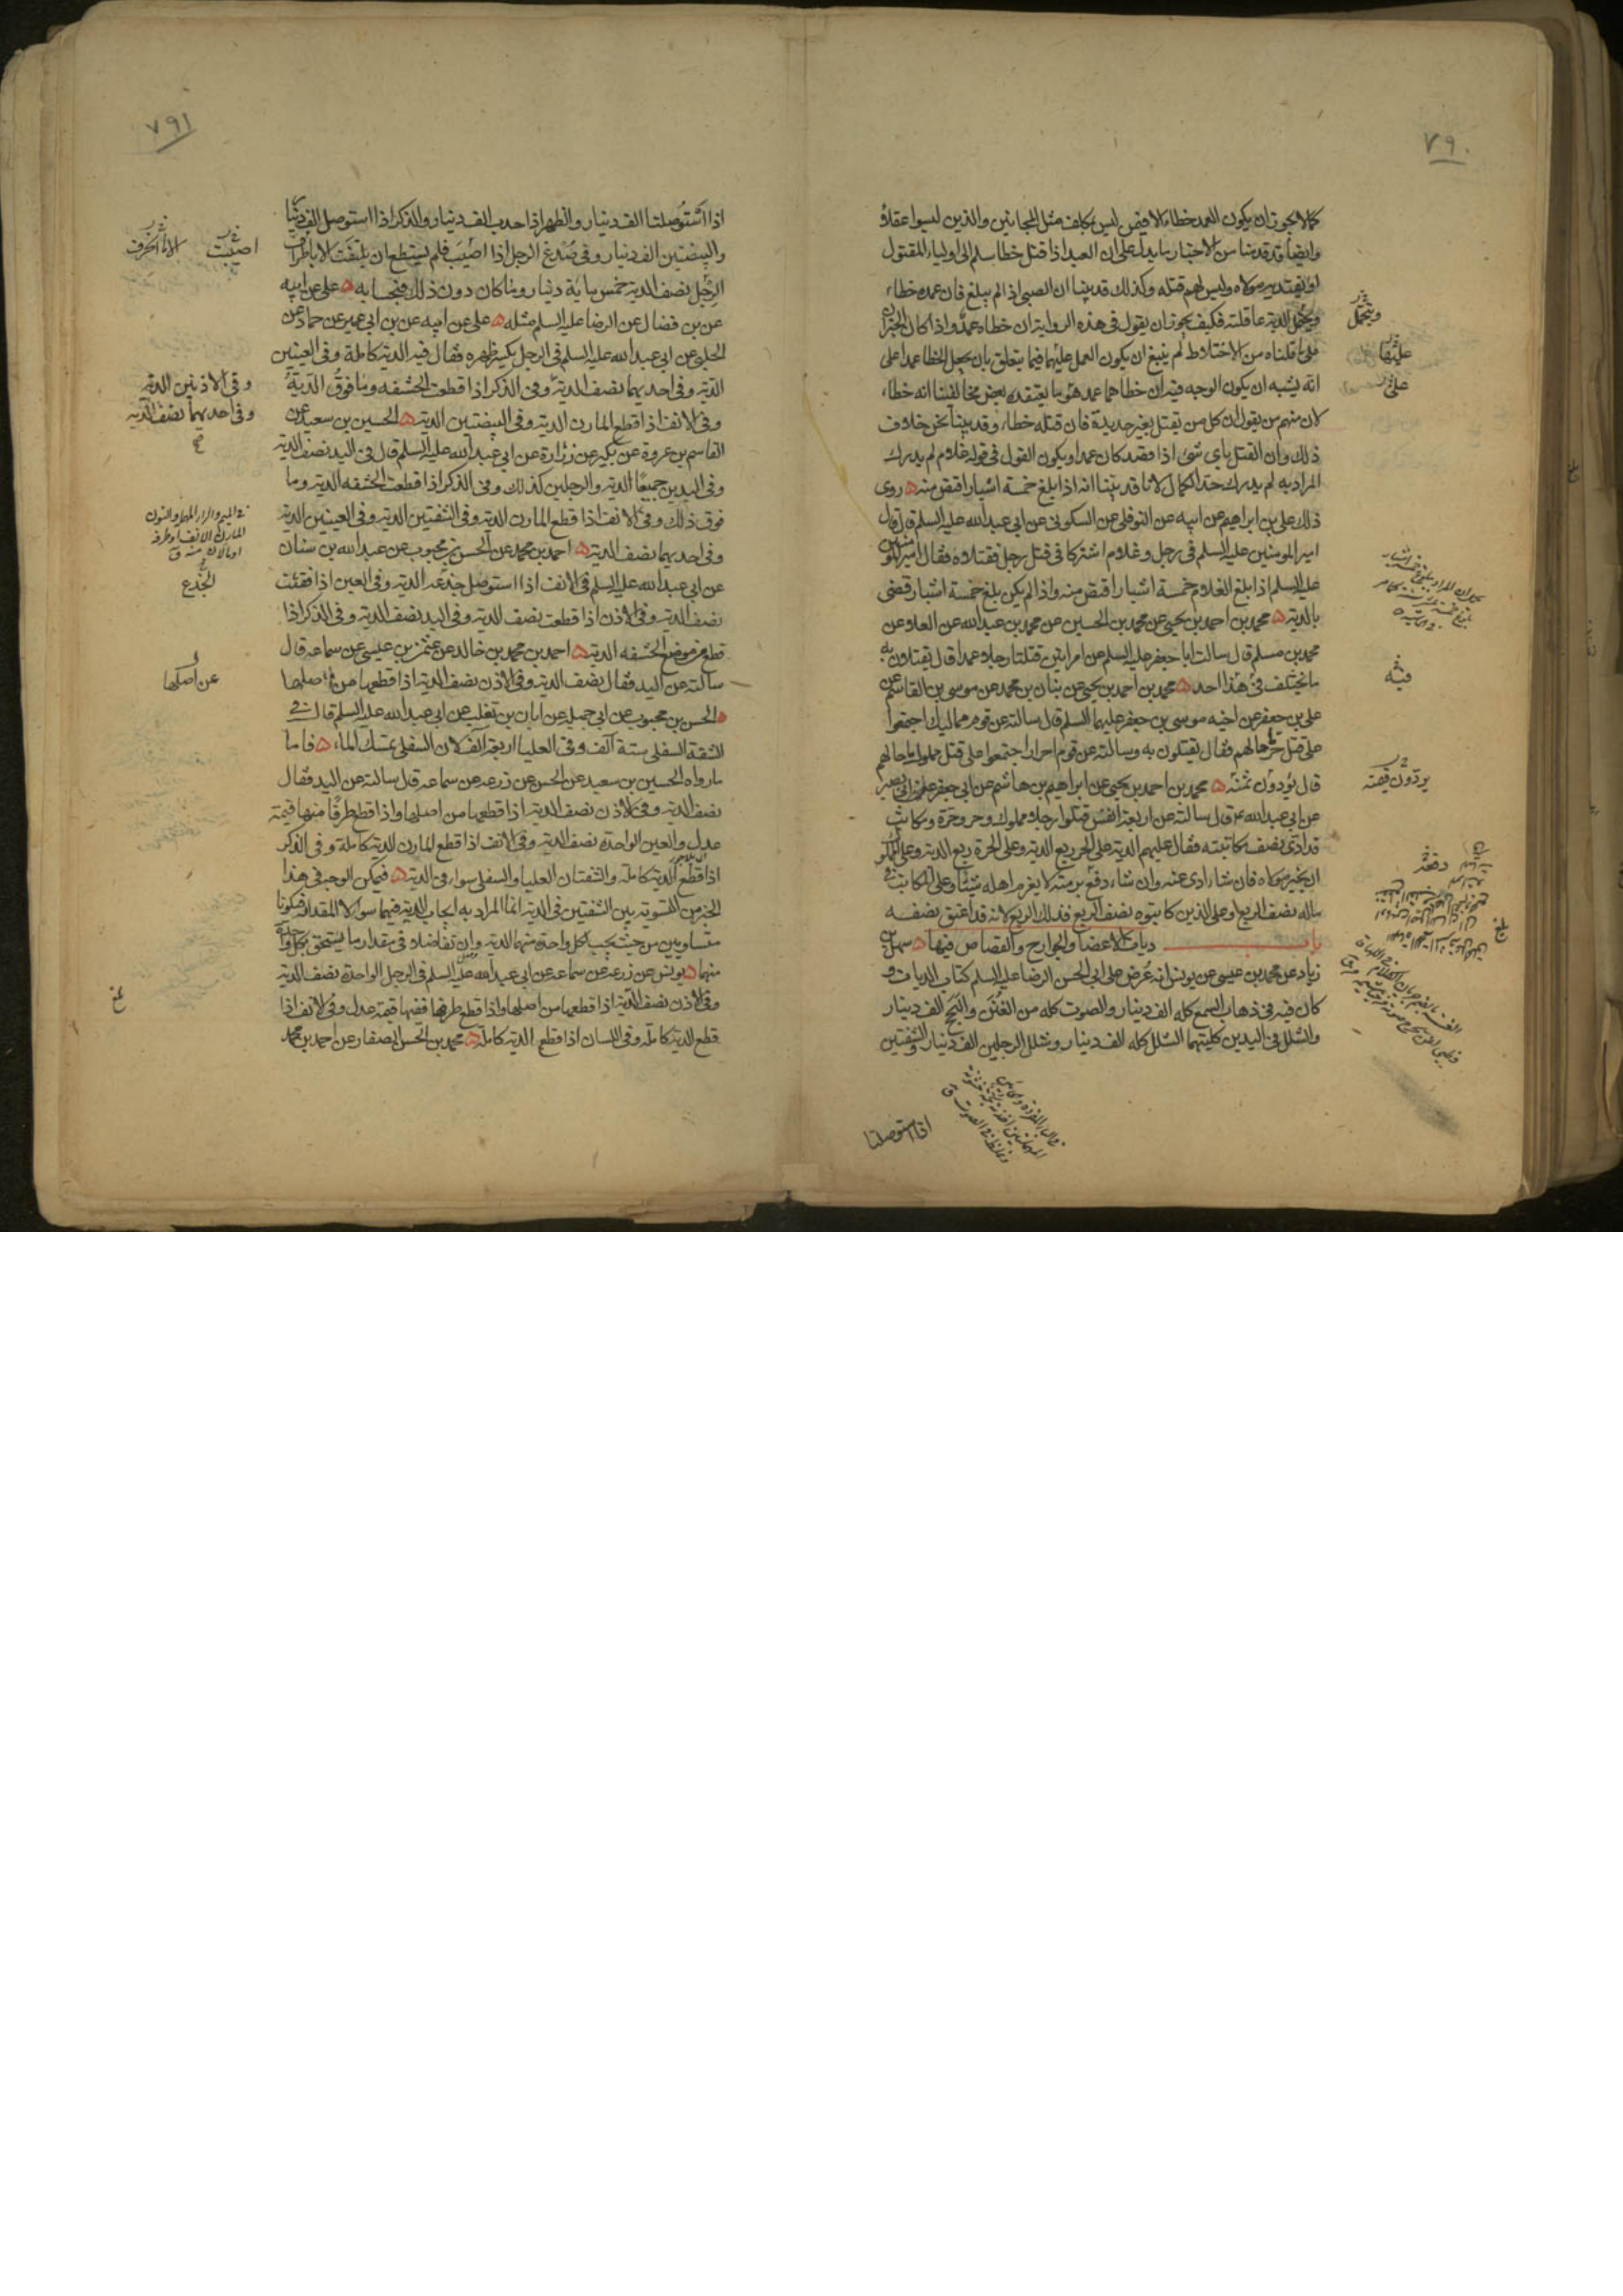 ٧٩٠
كما لا يجوز ان يكون العمد خطاء الا فيمن ليس بمكلف مثل المجانين والذين ليسوا عقلاؤ
وايضا قد قدمنا من الاخبار ما يدل على ان العبد اذا قتل خطا سلم الى اولياء المقتول
او يفتديه مولاه وليس لهم قتله وكذلك قد بينا ان الصبي اذا لم يبلغ فان عمده خطاء
ويحمل الدية عاقلته فكيف يجوز ان يقول في هذه الرواية ان خطاه عمد واذا كان الخبران
على ما قلناه من الاختلاط لم ينبغ ان يكون العمل عليهما فيما يتعلق بان يجعل الخطا عمدا على
انه يشبه ان يكون الوجه فيه ان خطاهما عمد هو ما يعتقده بعض مخالفينا انه خطاء
لان منهم من يقول ان كل من يقتل بغير حديدة فان قتله خطاء وقد بينا نحن خلاف
ذلك وان القتل باي شئ اذا قصد كان عمدا ويكون القول في قوله غلام لم يدرك
المراد به لم يدرك حد الكمال لانا قد بينا انه اذا بلغ خمسة اشبار اقتص منه روى
ذلك على بن ابراهيم عن ابيه عن النوفلي عن السكوني عن ابي عبد الله عليه السلم قال قال
امير المومنين عليه السلم في رجل و غلام اشتركا في قتل رجل فقتلاه فقال امير المومنين
عليه السلم اذا بلغ الغلام خمسة اشبار اقتص منه واذا لم يكن بلغ خمسة اشبار قضى
بالدية محمد بن احمد بن يحيى عن محمد بن الحسين عن محمد بن عبد الله عن العلا عن
محمد بن مسلم قال سالت ابا جعفر عليه السلم عن امراتين قتلتا رجلا عمدا قال يقتلان به
ما يختلف في هذا احد محمد بن احمد بن يحيى عن بنان بن محمد عن موسى بن القاسم عن
على بن جعفر عن اخيه موسى بن جعفر عليهما السلم قال سالته عن قوم مماليك اجتمعوا
على قتل حر ما حالهم فقال يقتلون به وسالته عن قوم احرار اجتمعوا على قتل مملوك ما حالهم
قال يؤدون ثمنه محمد بن احمد بن يحيى عن ابراهيم بن هاشم عن ابي جعفر عن ابي بصير
عن ابي عبد الله ع قال سالته عن اربعة انفس قتلوا رجلا مملوك وحر وحرة ومكاتب
قد ادى نصف مكاتبته فقال عليهم الدية على الحر ربع الدية وعلى الحرة ربع الدية وعلى المملوك
ان يخير مولاه فان شاء ادى عنه وان شاء دفع برمته لا يغرم اهله شيئا وعلى المكاتب في
ماله نصف الربع وعلى الذين كاتبوه نصف الربع فذلك الربع لانه قد اعتق نصفه
باب ديات الاعضاء والجوارح والقصاص فيها سهل بن
زياد عن محمد بن عيسى عن يونس انه عرض على ابي الحسن الرضا عليه السلم كتاب الديات و
كان فيه في ذهاب السمع كله الف دينار والصوت كله من الغنن والبحح الف دينار
والشلل في اليدين كلتيهما الشلل كله الف دينار وشلل الرجلين الف دينار والشفتين
اذا استوصلتا
ويتحمل
عليهما
على
فيه
يردون قيمته
دفعه
٧٩١
اذا استوصلتا الف دينار والظهر اذا احدب الف دينار والذكر اذا استوصل الف دينار
والبيضتين الف دينار وفي صدغ الرجل اذا اصيب فلم يستطع ان يلتفت الا باطراف
الرجل نصف الدية خمس ماية دينار وما كان دون ذلك فبحسابه على عن ابيه
عن بن فضال عن الرضا عليه السلم مثله على عن ابيه عن بن ابي عمير عن حماد عن
الحلبي عن ابي عبد الله عليه السلم في الرجل يكسر ظهره فقال فيه الدية كاملة وفي العينين
الدية وفي احديهما نصف الدية وفي الذكر اذا قطعت الحشفه وما فوق الدية
وفي الانف اذا قطع المارن الدية وفي البيضتين الدية الحسين بن سعيد عن
القاسم بن عروة عن بكير عن زرارة عن ابي عبد الله عليه السلم قال في اليد نصف الدية
وفي اليدين جميعا الدية والرجلين كذلك وفي الذكر اذا قطعت الحشفه الدية وما
فوق ذلك وفي الانف اذا قطع المارن الدية وفي الشفتين الدية وفي العينين الدية
وفي احديهما نصف الدية احمد بن محمد عن الحسن بن محبوب عن عبد الله بن سنان
عن ابي عبد الله عليه السلم في الانف اذا استوصل جدعه الدية وفي العين اذا فقئت
نصف الدية وفي الاذن اذا قطعت نصف الدية وفي اليد نصف الدية وفي الذكر اذا
قطع من موضع الحشفه الدية احمد بن محمد بن خالد عن عثمن بن عيسى عن سماعه قال
سالته عن اليد فقال نصف الدية وفي الاذن نصف الدية اذا قطعها من اصلها
الحسن بن محبوب عن ابي جميله عن ابان بن تغلب عن ابي عبد الله عليه السلم قال في
الشفة السفلى ستة آلف وفي العليا اربعة آلف لان السفلى تمسك الماء فاما
ما رواه الحسين بن سعيد عن الحسن عن زرعه عن سماعه قال سالته عن اليد فقال
نصف الدية وفي الاذن نصف الدية اذا قطعها من اصلها واذا قطع طرفا منها قيمة
عدل والعين الواحدة نصف الدية وفي الانف اذا قطع المارن الدية كاملة وفي الذكر
اذا قطع الدية كاملة والشفتان العليا والسفلى سواء في الدية فيمكن الوجه في هذا
الخبر من التسوية بين الشفتين في الدية انما المراد به ايجاب الدية فيهما سواء لا المقدار فيكونا
متساويين من حيث يجب لكل واحدة منهما الدية وان تفاضلا في مقدار ما يستحق بكل واحدة
منهما يونس عن زرعه عن سماعه عن ابي عبد الله عليه السلم في الرجل الواحدة نصف الدية
وفي الاذن نصف الدية اذا قطعها من اصلها واذا قطع طرفها ففيها قيمة عدل وفي الانف اذا
قطع الدية كاملة وفي اللسان اذا قطع الدية كاملة محمد بن الحسن الصفار عن احمد بن محمد
اصيبت
وفي الاذنين الدية
وفي احديهما نصف الدية
الجدع
عن اصلها